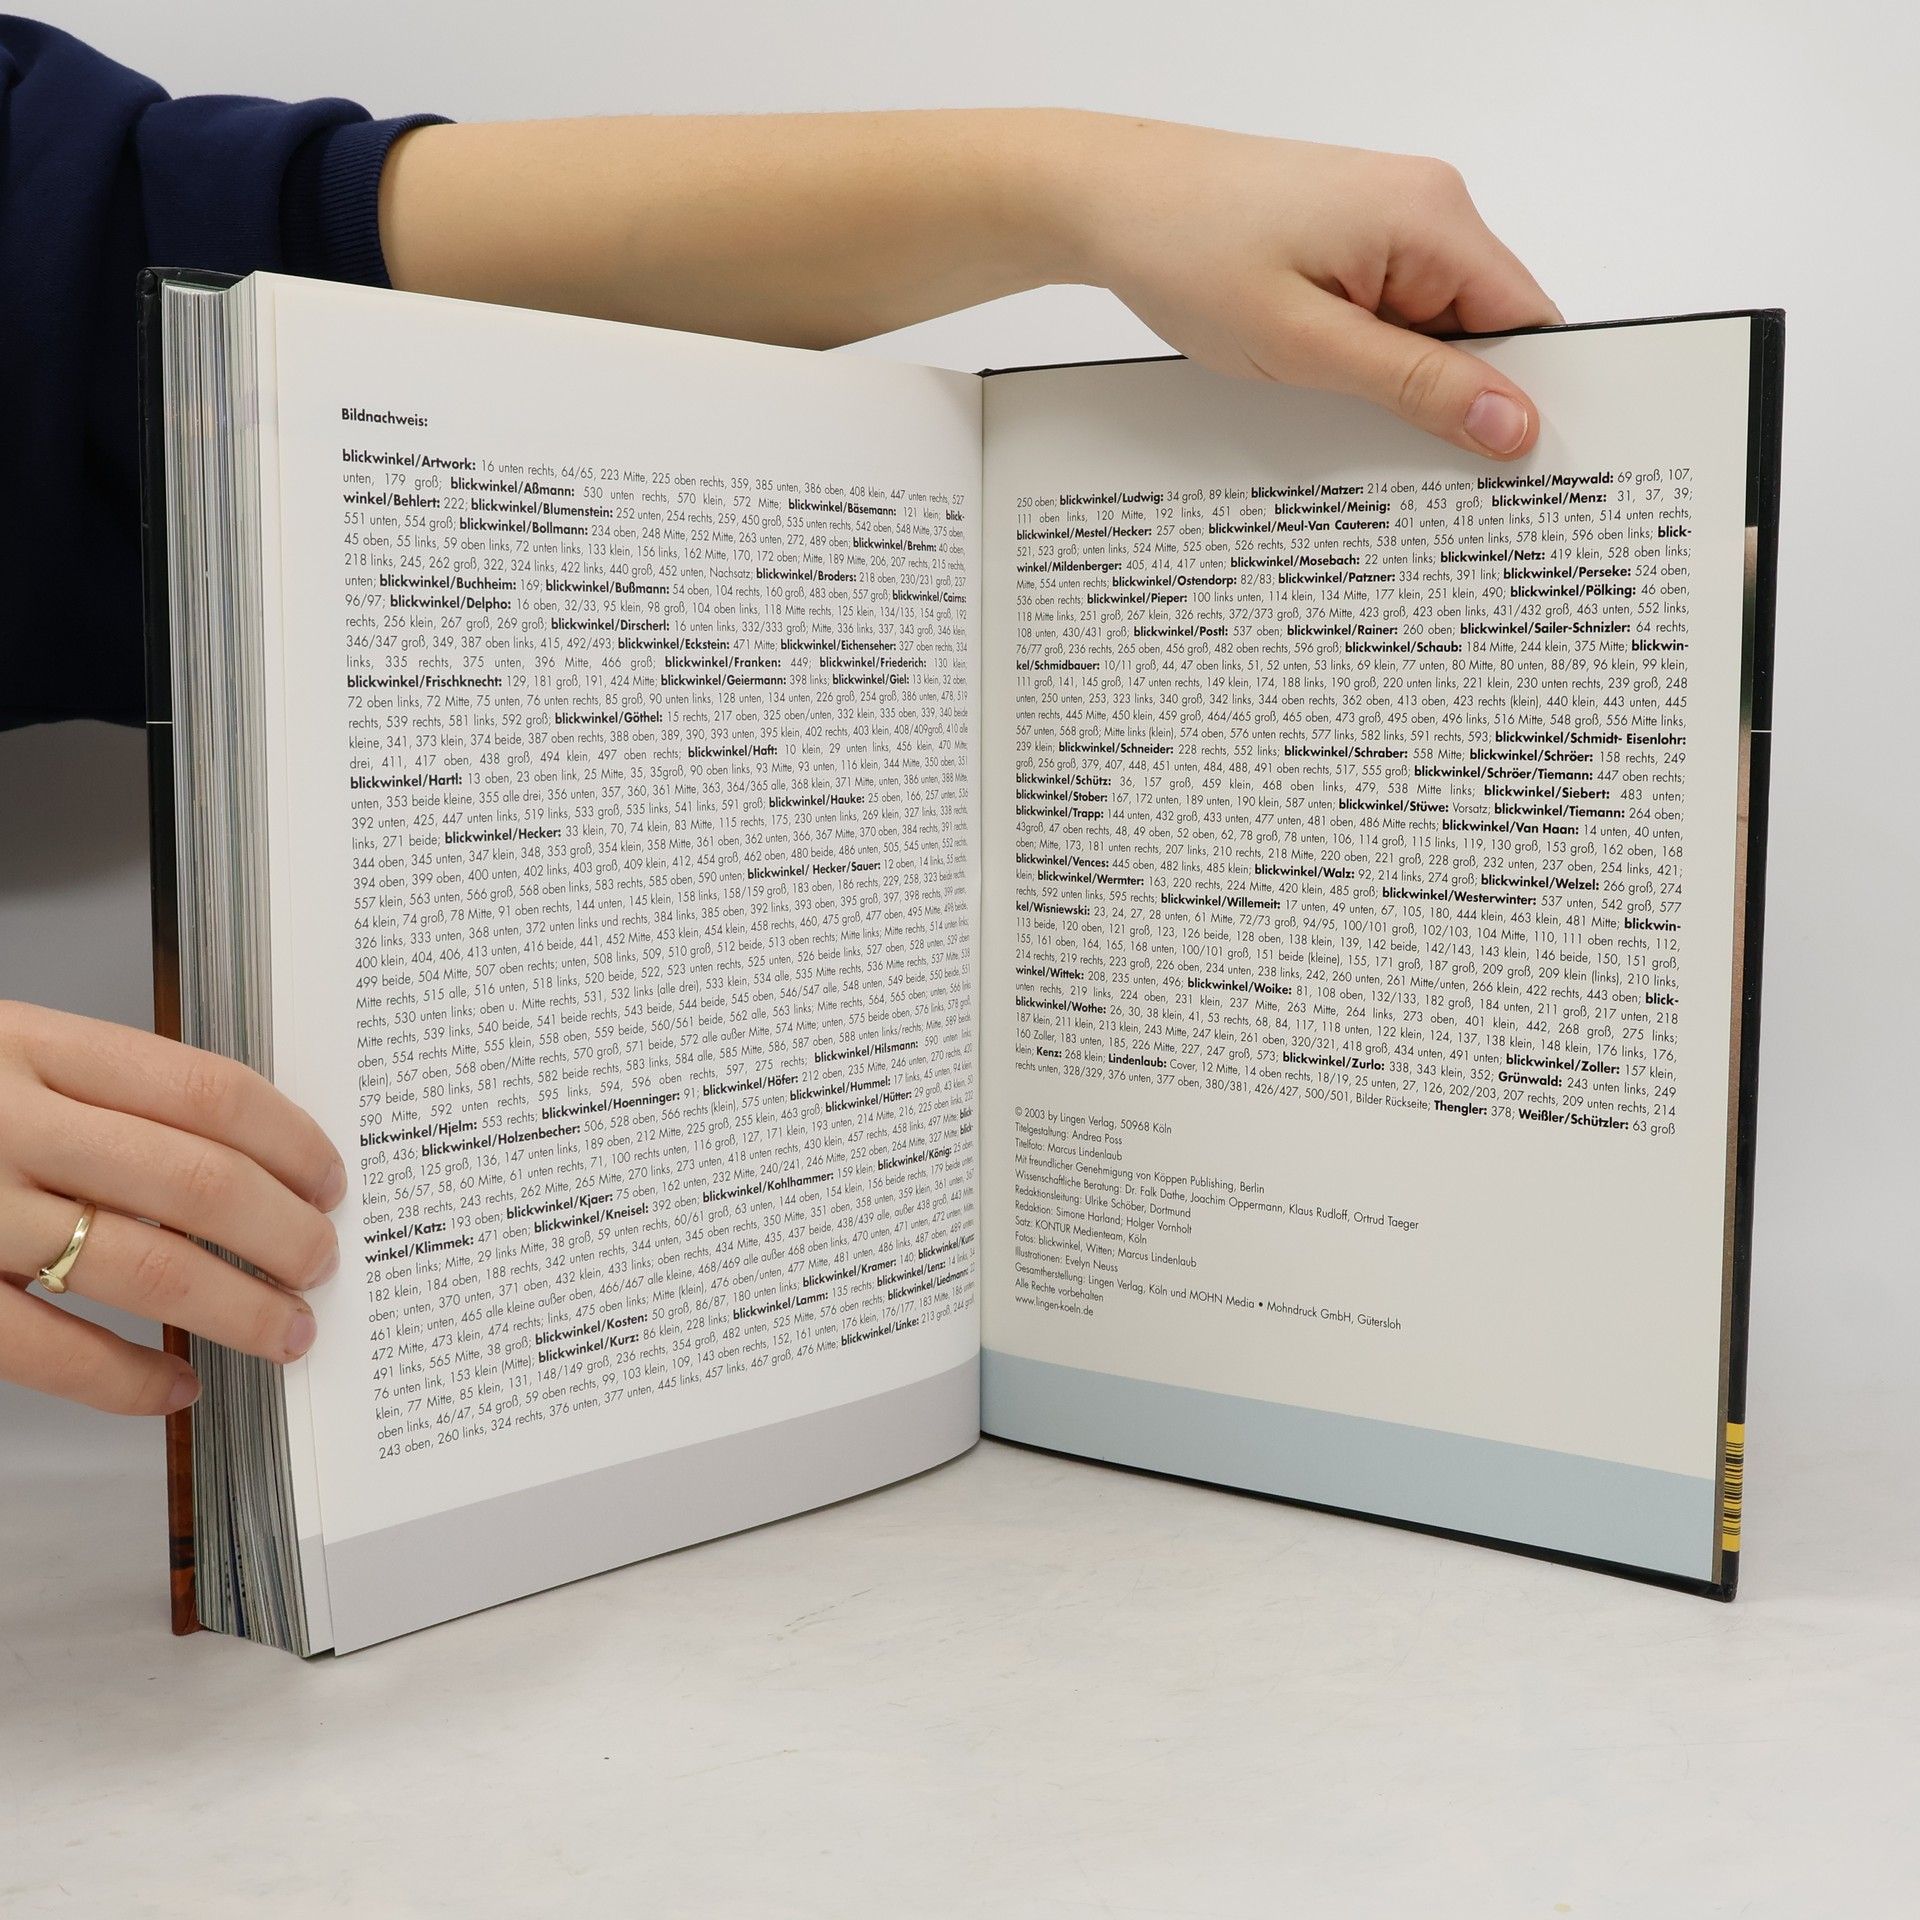 Bildnachweis:
blickwinkel/Artwork: 16 unten rechts, 64/65, 223 Mitte, 225 oben rechts, 359, 385 unten, 386 oben, 408 klein, 447 unten rechts, 527
unten, 179 groß; blickwinkel/Aßmann: 530 unten rechts, 570 klein, 572 Mitte; blickwinkel/Bäsemann: 121 klein; blick-
winkel/Behlert: 222; blickwinkel/Blumenstein: 252 unten, 254 rechts, 259, 450 groß, 535 unten rechts, 542 oben, 548 Mitte, 375 oben,
551 unten, 554 groß; blickwinkel/Bollmann: 234 oben, 248 Mitte, 252 Mitte, 263 unten, 272, 489 oben; blickwinkel/Brehm: 40 oben,
45 oben, 55 links, 59 oben links, 72 unten links, 133 klein, 156 links, 162 Mitte, 170, 172 oben; Mitte, 189 Mitte, 206, 207 rechts, 215 rechts,
218 links, 245, 262 groß, 322, 324 links, 422 links, 440 groß, 452 unten, Nachsatz; blickwinkel/Broders: 218 oben, 230/231 groß, 237
unten; blickwinkel/Buchheim: 169; blickwinkel/Bußmann: 54 oben, 104 rechts, 160 groß, 483 oben, 557 groß; blickwinkel/Cairns:
96/97; blickwinkel/Delpho: 16 oben, 32/33, 95 klein, 98 groß, 104 oben links, 118 Mitte rechts, 125 klein, 134/135, 154 groß, 192
rechts, 256 klein, 267 groß, 269 groß; blickwinkel/Dirscherl: 16 unten links, 332/333 groß; Mitte, 336 links, 337, 343 groß, 346 klein,
346/347 groß, 349, 387 oben links, 415, 492/493; blickwinkel/Eckstein: 471 Mitte; blickwinkel/Eichenseher: 327 oben rechts, 334
links, 335 rechts, 375 unten, 396 Mitte, 466 groß; blickwinkel/Franken: 449; blickwinkel/Friederich: 130 klein;
blickwinkel/Frischknecht: 129, 181 groß, 191, 424 Mitte; blickwinkel/Geiermann: 398 links; blickwinkel/Giel: 13 klein, 32 oben,
72 oben links, 72 Mitte, 75 unten, 76 unten rechts, 85 groß, 90 unten links, 128 unten, 134 unten, 226 groß, 254 groß, 386 unten, 478, 519
rechts, 539 rechts, 581 links, 592 groß; blickwinkel/Göthel: 15 rechts, 217 oben, 325 oben/unten, 332 klein, 335 oben, 339, 340 beide
kleine, 341, 373 klein, 374 beide, 387 oben rechts, 388 oben, 389, 390, 393 unten, 395 klein, 402 rechts, 403 klein, 408/409groß, 410 alle
drei, 411, 417 oben, 438 groß, 494 klein, 497 oben rechts; blickwinkel/Haft: 10 klein, 29 unten links, 456 klein, 470 Mitte;
blickwinkel/Hartl: 13 oben, 23 oben link, 25 Mitte, 35, 35groß, 90 oben links, 93 Mitte, 93 unten, 116 klein, 344 Mitte, 350 oben, 351
unten, 353 beide kleine, 355 alle drei, 356 unten, 357, 360, 361 Mitte, 363, 364/365 alle, 368 klein, 371 Mitte, unten, 386 unten, 388 Mitte,
392 unten, 425, 447 unten links, 519 links, 533 groß, 535 links, 541 links, 591 groß; blickwinkel/Hauke: 25 oben, 166, 257 unten, 536
links, 271 beide; blickwinkel/Hecker: 33 klein, 70, 74 klein, 83 Mitte, 115 rechts, 175, 230 unten links, 269 klein, 327 links, 338 rechts,
344 oben, 345 unten, 347 klein, 348, 353 groß, 354 klein, 358 Mitte, 361 oben, 362 unten, 366, 367 Mitte, 370 oben, 384 rechts, 391 rechts,
394 oben, 399 oben, 400 unten, 402 links, 403 groß, 409 klein, 412, 454 groß, 462 oben, 480 beide, 486 unten, 505, 545 unten, 552 rechts,
557 klein, 563 unten, 566 groß, 568 oben links, 583 rechts, 585 oben, 590 unten; blickwinkel/ Hecker/Sauer: 12 oben, 14 links, 55 rechts,
64 klein, 74 groß, 78 Mitte, 91 oben rechts, 144 unten, 145 klein, 158 links, 158/159 groß, 183 oben, 186 rechts, 229, 258, 323 beide rechts,
326 links, 333 unten, 368 unten, 372 unten links und rechts, 384 links, 385 oben, 392 links, 393 oben, 395 groß, 397, 398 rechts, 399 unten,
400 klein, 404, 406, 413 unten, 416 beide, 441, 452 Mitte, 453 klein, 454 klein, 458 rechts, 460, 475 groß, 477 oben, 495 Mitte, 498 beide,
499 beide, 504 Mitte, 507 oben rechts; unten, 508 links, 509, 510 groß, 512 beide, 513 oben rechts; Mitte links; Mitte rechts, 514 unten links;
Mitte rechts, 515 alle, 516 unten, 518 links, 520 beide, 522, 523 unten rechts, 525 unten, 526 beide links, 527 oben, 528 unten, 529 oben
rechts, 530 unten links; oben u. Mitte rechts, 531, 532 links (alle drei), 533 klein, 534 alle, 535 Mitte rechts, 536 Mitte rechts, 537 Mitte, 538
Mitte rechts, 539 links, 540 beide, 541 beide rechts, 543 beide, 544 beide, 545 oben, 546/547 alle, 548 unten, 549 beide, 550 beide, 551
oben, 554 rechts Mitte, 555 klein, 558 oben, 559 beide, 560/561 beide, 562 alle, 563 links; Mitte rechts, 564, 565 oben; unten, 566 links
(klein), 567 oben, 568 oben/Mitte rechts, 570 groß, 571 beide, 572 alle außer Mitte, 574 Mitte; unten, 575 beide oben, 576 links, 578 groß,
579 beide, 580 links, 581 rechts, 582 beide rechts, 583 links, 584 alle, 585 Mitte, 586, 587 oben, 588 unten links/rechts; Mitte, 589 beide,
590 Mitte, 592 unten rechts, 595 links, 594, 596 oben rechts, 597, 275 rechts; blickwinkel/Hilsmann: 590 unten links;
blickwinkel/Hjelm: 553 rechts; blickwinkel/Hoenninger: 91; blickwinkel/Höfer: 212 oben, 235 Mitte, 246 unten, 270 rechts, 420
groß, 436; blickwinkel/Holzenbecher: 506, 528 oben, 566 rechts (klein), 575 unten; blickwinkel/Hummel: 17 links, 45 unten, 94 klein,
122 groß, 125 groß, 136, 147 unten links, 189 oben, 212 Mitte, 225 groß, 255 klein, 463 groß; blickwinkel/Hütter: 29 groß, 43 klein, 50
klein, 56/57, 58, 60 Mitte, 61 unten rechts, 71, 100 rechts unten, 116 groß, 127, 171 klein, 193 unten, 214 Mitte, 216, 225 oben links, 232
oben, 238 rechts, 243 rechts, 262 Mitte, 265 Mitte, 270 links, 273 unten, 418 unten rechts, 430 klein, 457 rechts, 458 links, 497 Mitte; blick-
winkel/Katz: 193 oben; blickwinkel/Kjaer: 75 oben, 162 unten, 232 Mitte, 240/241, 246 Mitte, 252 oben, 264 Mitte, 327 Mitte; blick-
winkel/Klimmek: 471 oben; blickwinkel/Kneisel: 392 oben; blickwinkel/Kohlhammer: 159 klein; blickwinkel/König: 25 oben,
28 oben links; Mitte, 29 links Mitte, 38 groß, 59 unten rechts, 60/61 groß, 63 unten, 144 oben, 154 klein, 156 beide rechts, 179 beide unten,
182 klein, 184 oben, 188 rechts, 342 unten rechts, 344 unten, 345 oben rechts, 350 Mitte, 351 oben, 358 unten, 359 klein, 361 unten, 367
oben; unten, 370 unten, 371 oben, 432 klein, 433 links; oben rechts, 434 Mitte, 435, 437 beide, 438/439 alle, außer 438 groß, 443 Mitte,
461 klein; unten, 465 alle kleine außer oben, 466/467 alle kleine, 468/469 alle außer 468 oben links, 470 unten, 471 unten, 472 unten; Mitte,
472 Mitte, 473 klein, 474 rechts; links, 475 oben links; Mitte (klein), 476 oben/unten, 477 Mitte, 481 unten, 486 links, 487 oben, 489 unten,
491 links, 565 Mitte, 38 groß; blickwinkel/Kosten: 50 groß, 86/87, 180 unten links; blickwinkel/Kramer: 140; blickwinkel/Kunz:
76 unten link, 153 klein (Mitte); blickwinkel/Kurz: 86 klein, 228 links; blickwinkel/Lamm: 135 rechts; blickwinkel/Lenz: 14 links, 34
klein, 77 Mitte, 85 klein, 131, 148/149 groß, 236 rechts, 354 groß, 482 unten, 525 Mitte, 576 oben rechts; blickwinkel/Liedmann: 22
oben links, 46/47, 54 groß, 59 oben rechts, 99, 103 klein, 109, 143 oben rechts, 152, 161 unten, 176 klein, 176/177, 183 Mitte, 186 unten,
243 oben, 260 links, 324 rechts, 376 unten, 377 unten, 445 links, 457 links, 467 groß, 476 Mitte; blickwinkel/Linke: 213 groß, 244 groß,
250 oben; blickwinkel/Ludwig: 34 groß, 89 klein; blickwinkel/Matzer: 214 oben, 446 unten; blickwinkel/Maywald: 69 groß, 107,
111 oben links, 120 Mitte, 192 links, 451 oben; blickwinkel/Meinig: 68, 453 groß; blickwinkel/Menz: 31, 37, 39;
blickwinkel/Mestel/Hecker: 257 oben; blickwinkel/Meul-Van Cauteren: 401 unten, 418 unten links, 513 unten, 514 unten rechts,
521, 523 groß; unten links, 524 Mitte, 525 oben, 526 rechts, 532 unten rechts, 538 unten, 556 unten links, 578 klein, 596 oben links; blick-
winkel/Mildenberger: 405, 414, 417 unten; blickwinkel/Mosebach: 22 unten links; blickwinkel/Netz: 419 klein, 528 oben links;
Mitte, 554 unten rechts; blickwinkel/Ostendorp: 82/83; blickwinkel/Patzner: 334 rechts, 391 link; blickwinkel/Perseke: 524 oben,
536 oben rechts; blickwinkel/Pieper: 100 links unten, 114 klein, 134 Mitte, 177 klein, 251 klein, 490; blickwinkel/Pölking: 46 oben,
118 Mitte links, 251 groß, 267 klein, 326 rechts, 372/373 groß, 376 Mitte, 423 groß, 423 oben links, 431/432 groß, 463 unten, 552 links,
108 unten, 430/431 groß; blickwinkel/Postl: 537 oben; blickwinkel/Rainer: 260 oben; blickwinkel/Sailer-Schnizler: 64 rechts,
76/77 groß, 236 rechts, 265 oben, 456 groß, 482 oben rechts, 596 groß; blickwinkel/Schaub: 184 Mitte, 244 klein, 375 Mitte; blickwin-
kel/Schmidbauer: 10/11 groß, 44, 47 oben links, 51, 52 unten, 53 links, 69 klein, 77 unten, 80 Mitte, 80 unten, 88/89, 96 klein, 99 klein,
111 groß, 141, 145 groß, 147 unten rechts, 149 klein, 174, 188 links, 190 groß, 220 unten links, 221 klein, 230 unten rechts, 239 groß, 248
unten, 250 unten, 253, 323 links, 340 groß, 342 links, 344 oben rechts, 362 oben, 413 oben, 423 rechts (klein), 440 klein, 443 unten, 445
unten rechts, 445 Mitte, 450 klein, 459 groß, 464/465 groß, 465 oben, 473 groß, 495 oben, 496 links, 516 Mitte, 548 groß, 556 Mitte links,
567 unten, 568 groß; Mitte links (klein), 574 oben, 576 unten, 577 links, 582 links, 591 rechts, 593; blickwinkel/Schmidt- Eisenlohr:
239 klein; blickwinkel/Schneider: 228 rechts, 552 links; blickwinkel/Schraber: 558 Mitte; blickwinkel/Schröer: 158 rechts, 249
groß, 256 groß, 379, 407, 448, 451 unten, 484, 488, 491 oben rechts, 517, 555 groß; blickwinkel/Schröer/Tiemann: 447 oben rechts;
blickwinkel/Schütz: 36, 157 groß, 459 klein, 468 oben links, 479, 538 Mitte links; blickwinkel/Siebert: 483 unten;
blickwinkel/Stober: 167, 172 unten, 189 unten, 190 klein, 587 unten; blickwinkel/Stüwe: Vorsatz; blickwinkel/Tiemann: 264 oben;
blickwinkel/Trapp: 144 unten, 432 groß, 433 unten, 477 unten, 481 oben, 486 Mitte rechts; blickwinkel/Van Haan: 14 unten, 40 unten,
43groß, 47 oben rechts, 48, 49 oben, 52 oben, 62, 78 groß, 78 unten, 106, 114 groß, 115 links, 119, 130 groß, 153 groß, 162 oben, 168
oben; Mitte, 173, 181 unten rechts, 207 links, 210 rechts, 218 Mitte, 220 oben, 221 groß, 228 groß, 232 unten, 237 oben, 254 links, 421;
blickwinkel/Vences: 445 oben, 482 links, 485 klein; blickwinkel/Walz: 92, 214 links, 274 groß; blickwinkel/Welzel: 266 groß, 274
klein; blickwinkel/Wermter: 163, 220 rechts, 224 Mitte, 420 klein, 485 groß; blickwinkel/Westerwinter: 537 unten, 542 groß, 577
rechts, 592 unten links, 595 rechts; blickwinkel/Willemeit: 17 unten, 49 unten, 67, 105, 180, 444 klein, 463 klein, 481 Mitte; blickwin-
kel/Wisniewski: 23, 24, 27, 28 unten, 61 Mitte, 72/73 groß, 94/95, 100/101 groß, 102/103, 104 Mitte, 110, 111 oben rechts, 112,
113 beide, 120 oben, 121 groß, 123, 126 beide, 128 oben, 138 klein, 139, 142 beide, 142/143, 143 klein, 146 beide, 150, 151 groß,
155, 161 oben, 164, 165, 168 unten, 100/101 groß, 151 beide (kleine), 155, 171 groß, 187 groß, 209 groß, 209 klein (links), 210 links,
214 rechts, 219 rechts, 223 groß, 226 oben, 234 unten, 238 links, 242, 260 unten, 261 Mitte/unten, 266 klein, 422 rechts, 443 oben; blick-
winkel/Wittek: 208, 235 unten, 496; blickwinkel/Woike: 81, 108 oben, 132/133, 182 groß, 184 unten, 211 groß, 217 unten, 218
unten rechts, 219 links, 224 oben, 231 klein, 237 Mitte, 263 Mitte, 264 links, 273 oben, 401 klein, 442, 268 groß, 275 links;
blickwinkel/Wothe: 26, 30, 38 klein, 41, 53 rechts, 68, 84, 117, 118 unten, 122 klein, 124, 137, 138 klein, 148 klein, 176 links, 176,
187 klein, 211 klein, 213 klein, 243 Mitte, 247 klein, 261 oben, 320/321, 418 groß, 434 unten, 491 unten; blickwinkel/Zoller: 157 klein,
160 Zoller, 183 unten, 185, 226 Mitte, 227, 247 groß, 573; blickwinkel/Zurlo: 338, 343 klein, 352; Grünwald: 243 unten links, 249
klein; Kenz: 268 klein; Lindenlaub: Cover, 12 Mitte, 14 oben rechts, 18/19, 25 unten, 27, 126, 202/203, 207 rechts, 209 unten rechts, 214
rechts unten, 328/329, 376 unten, 377 oben, 380/381, 426/427, 500/501, Bilder Rückseite; Thengler: 378; Weißler/Schützler: 63 groß
© 2003 by Lingen Verlag, 50968 Köln
Titelgestaltung: Andrea Poss
Titelfoto: Marcus Lindenlaub
Mit freundlicher Genehmigung von Köppen Publishing, Berlin
Wissenschaftliche Beratung: Dr. Falk Dathe, Joachim Oppermann, Klaus Rudloff, Ortrud Taeger
Redaktionsleitung: Ulrike Schöber, Dortmund
Redaktion: Simone Harland; Holger Vornholt
Satz: KONTUR Medienteam, Köln
Fotos: blickwinkel, Witten; Marcus Lindenlaub
Illustrationen: Evelyn Neuss
Gesamtherstellung: Lingen Verlag, Köln und MOHN Media • Mohndruck GmbH, Gütersloh
Alle Rechte vorbehalten
www.lingen-koeln.de